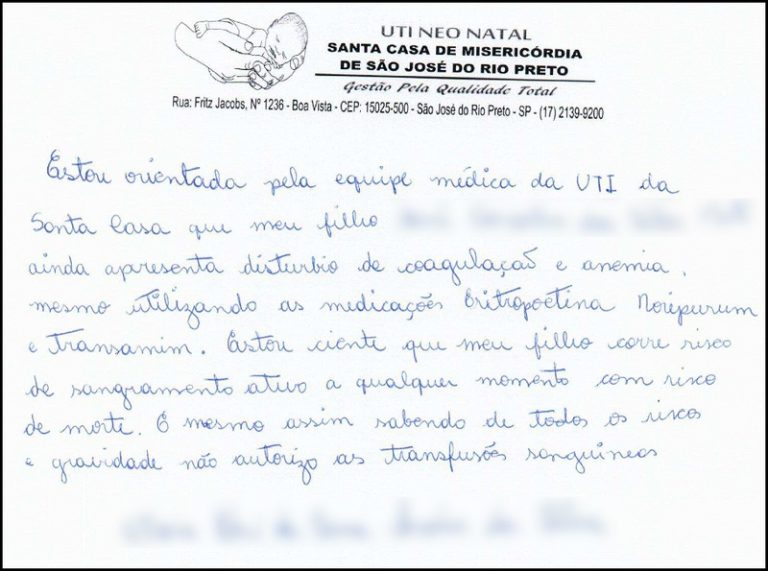 UTI NEO NATAL
SANTA CASA DE MISERICÓRDIA
DE SÃO JOSÉ DO RIO PRETO
Gestão Pela Qualidade Total
Rua: Fritz Jacobs, Nº 1236 - Boa Vista - CEP: 15025-500 - São José do Rio Preto - SP - (17) 2139-9200
Estou orientada pela equipe médica da UTI da
Santa Casa que meu filho
ainda apresenta disturbio de coagulação e anemia,
mesmo utilizando as medicações Eritropoetina Noripurum
e Transamim. Estou ciente que meu filho corre risco
de sangramento ativo a qualquer momento com risco
de morte. E mesmo assim sabendo de todos os riscos
e gravidade não autorizo as transfusões sanguineas